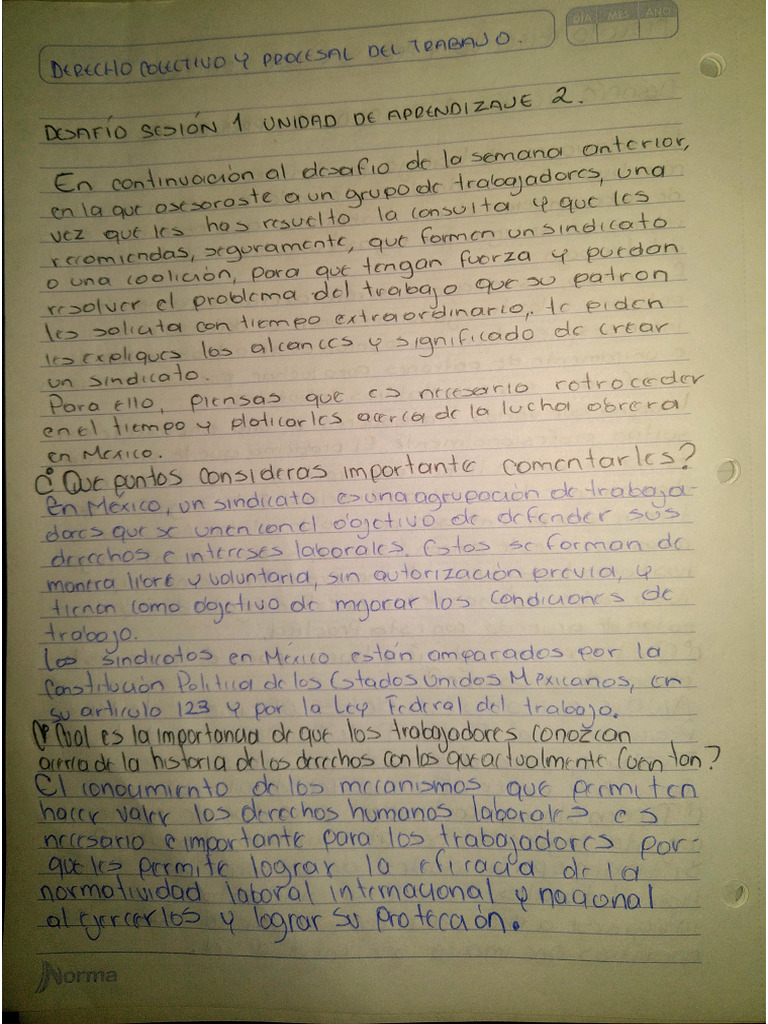 DIA MES AÑO
DERECHO COLECTIVO Y PROCESAL DEL TRABAJO.
DESAFÍO SESIÓN 1 UNIDAD DE APRENDIZAJE 2.
En continuación al desafio de la semana anterior,
en la que asesoraste a un grupo de trabajadores, una
vez que les has resuelto la consulta y que les
recomiendas, seguramente, que formen un sindicato
o una coalición, para que tengan fuerza y puedan
resolver el problema del trabajo que su patron
les solicita con tiempo extraordinario, te piden
les expliques los alcances y significado de crear
un sindicato.
Para ello, piensas que es necesario retroceder
en el tiempo y platicarles acerca de la lucha obrera
en Mexico.
¿Que puntos consideras importante comentarles?
En México, un sindicato es una agrupación de trabaja-
dores que se unen con el objetivo de defender sus
derechos e intereses laborales. Estos se forman de
manera libre y voluntaria, sin autorización previa, y
tienen como objetivo de mejorar los condiciones de
trabajo.
Los sindicatos en México están amparados por la
Constitución Politica de los Estados Unidos Mexicanos, en
su articulo 123 y por la Ley Federal del trabajo.
¿Cual es la importancia de que los trabajadores conozcan
acerca de la historia de los derechos con los que actualmente cuentan?
El conocimiento de los mecanismos que permiten
hacer valer los derechos humanos laborales es
necesario e importante para los trabajadores por-
que les permite lograr la eficacia de la
normatividad laboral internacional y nacional
al ejercerlos y lograr su protección.
Norma